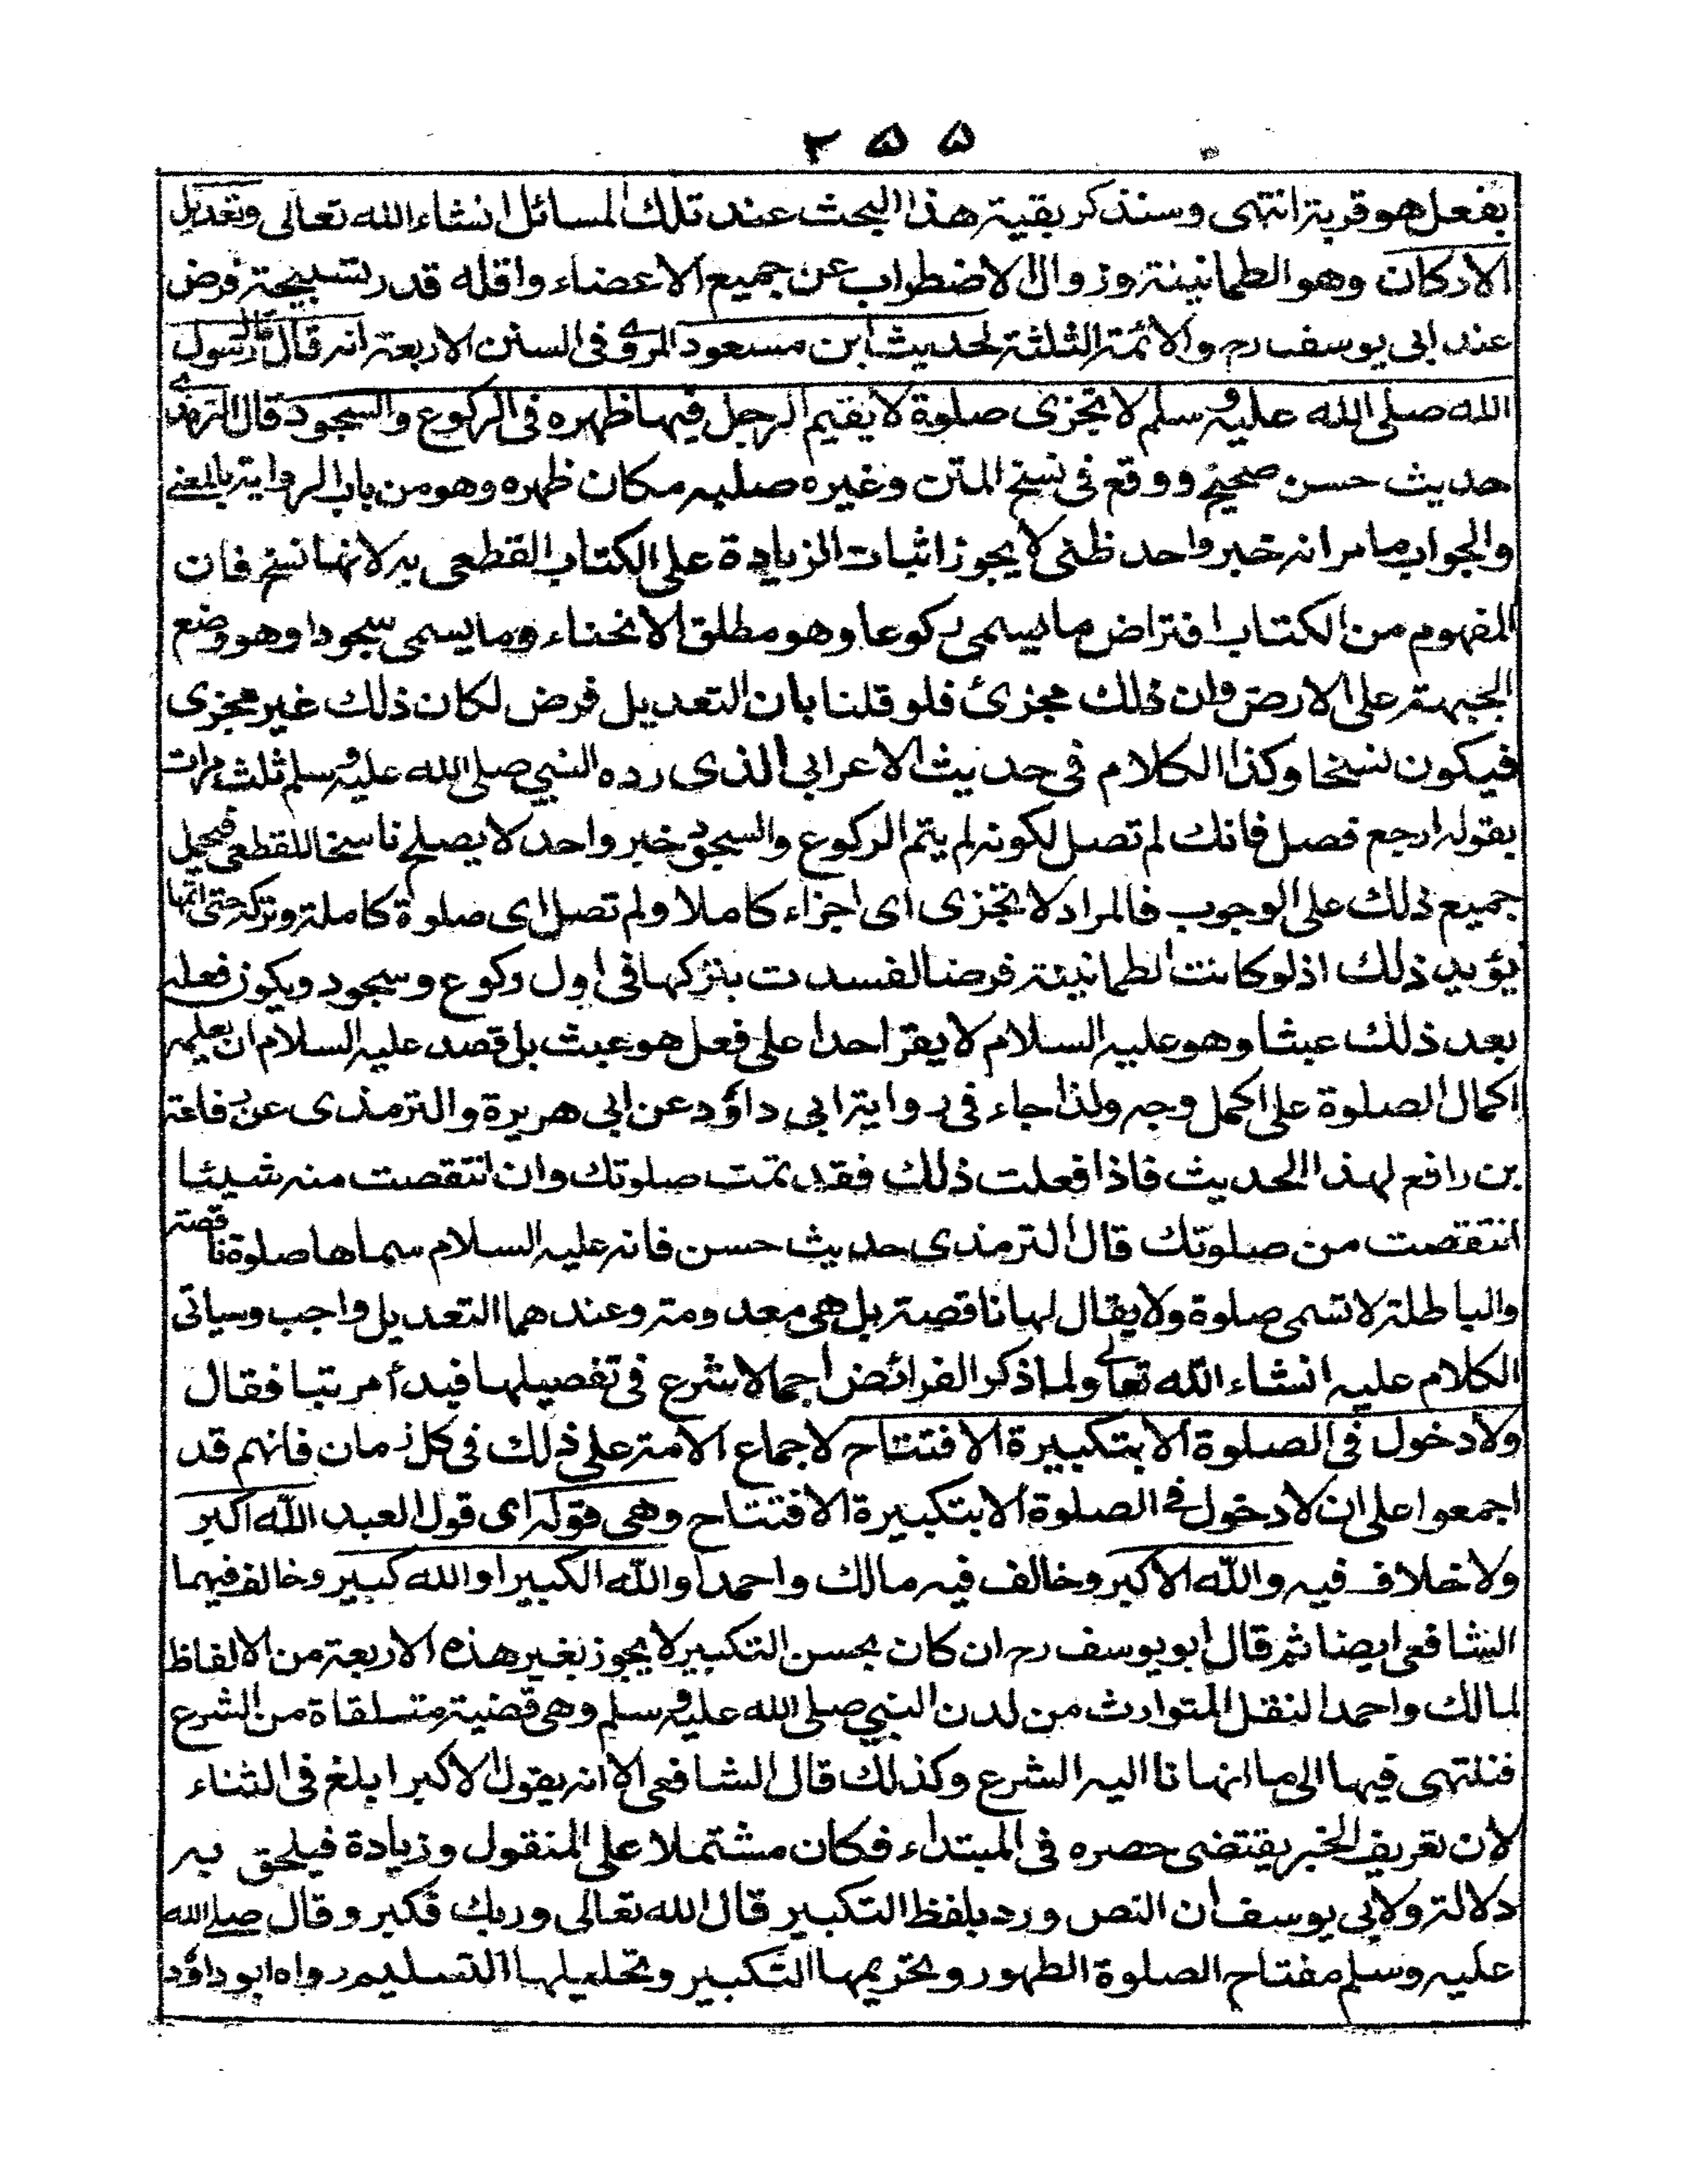 ٢٥٥
بفعل هو قربة انتهى وسنذكر بقية هذا البحث عند تلك المسائل انشاء الله تعالى وتعديل
الاركان وهو الطمانينة وزوال الاضطراب عن جميع الاعضاء واقله قدر تسبيحة فرض
عند ابى يوسف رح والائمة الثلثة لحديث ابن مسعود المروى فى السنن الاربعة انه قال قال رسول
الله صلى الله عليه وسلم لا تجزى صلوة لا يقيم الرجل فيها ظهره فى الركوع والسجود قال الترمذى
حديث حسن صحيح ووقع فى نسخ المتن وغيره صلبه مكان ظهره وهو من باب الرواية بالمعنى
والجواب ما مر انه خبر واحد ظنى لا يجوز اثبات الزيادة على الكتاب القطعى به لانها نسخ فان
المفهوم من الكتاب افتراض ما يسمى ركوعا وهو مطلق الانحناء وما يسمى سجودا وهو وضع
الجبهة على الارض وان ذلك مجزئ فلو قلنا بان التعديل فرض لكان ذلك غير مجزى
فيكون نسخا وكذا الكلام فى حديث الاعرابى الذى رده النبي صلى الله عليه وسلم ثلث مرات
بقوله ارجع فصل فانك لم تصل لكونه لم يتم الركوع والسجود خبر واحد لا يصلح ناسخا للقطعى فيحمل
جميع ذلك على الوجوب فالمراد لا تجزى اى اجزاء كاملا ولم تصل اى صلوة كاملة وتركه حتى اتمها
يؤيد ذلك اذ لو كانت الطمانينة فرضا لفسدت بتركها فى اول ركوع وسجود ويكون فعله
بعد ذلك عبثا وهو عليه السلام لا يقر احدا على فعل هو عبث بل قصد عليه السلام ان يعلمه
اكمال الصلوة على اكمل وجه ولذا جاء فى رواية ابى داؤد عن ابى هريرة والترمذى عن رفاعة
بن رافع لهذا الحديث فاذا فعلت ذلك فقد تمت صلوتك وان انتقصت منه شيئا
انتقصت من صلوتك قال الترمذى حديث حسن فانه عليه السلام سماها صلوة ناقصة
والباطلة لا تسمى صلوة ولا يقال لها ناقصة بل هى معدومة وعندهما التعديل واجب وسياتى
الكلام عليه انشاء الله تعالى ولما ذكر الفرائض اجمالا شرع فى تفصيلها فبدأ مرتبا فقال
ولا دخول فى الصلوة الا بتكبيرة الافتتاح لاجماع الامة على ذلك فى كل زمان فانهم قد
اجمعوا على ان لا دخول فى الصلوة الا بتكبيرة الافتتاح وهى قوله اى قول العبد الله اكبر
ولا خلاف فيه والله الاكبر وخالف فيه مالك واحمد او الله الكبير او الله كبير وخالف فيهما
الشافعى ايضا ثم قال ابو يوسف رح ان كان يحسن التكبير لا يجوز بغير هذه الاربعة من الالفاظ
لمالك واحمد النقل المتوارث من لدن النبي صلى الله عليه وسلم وهى قضية متلقاة من الشرع
فننتهى فيها الى ما انهانا اليه الشرع وكذلك قال الشافعى الا انه يقول الاكبر ابلغ فى الثناء
لان تعريف الخبر يقتضى حصره فى المبتداء فكان مشتملا على المنقول وزيادة فيلحق به
دلالة ولابى يوسف ان النص ورد بلفظ التكبير قال الله تعالى وربك فكبر وقال صلى الله
عليه وسلم مفتاح الصلوة الطهور وتحريمها التكبير وتحليلها التسليم رواه ابو داؤد